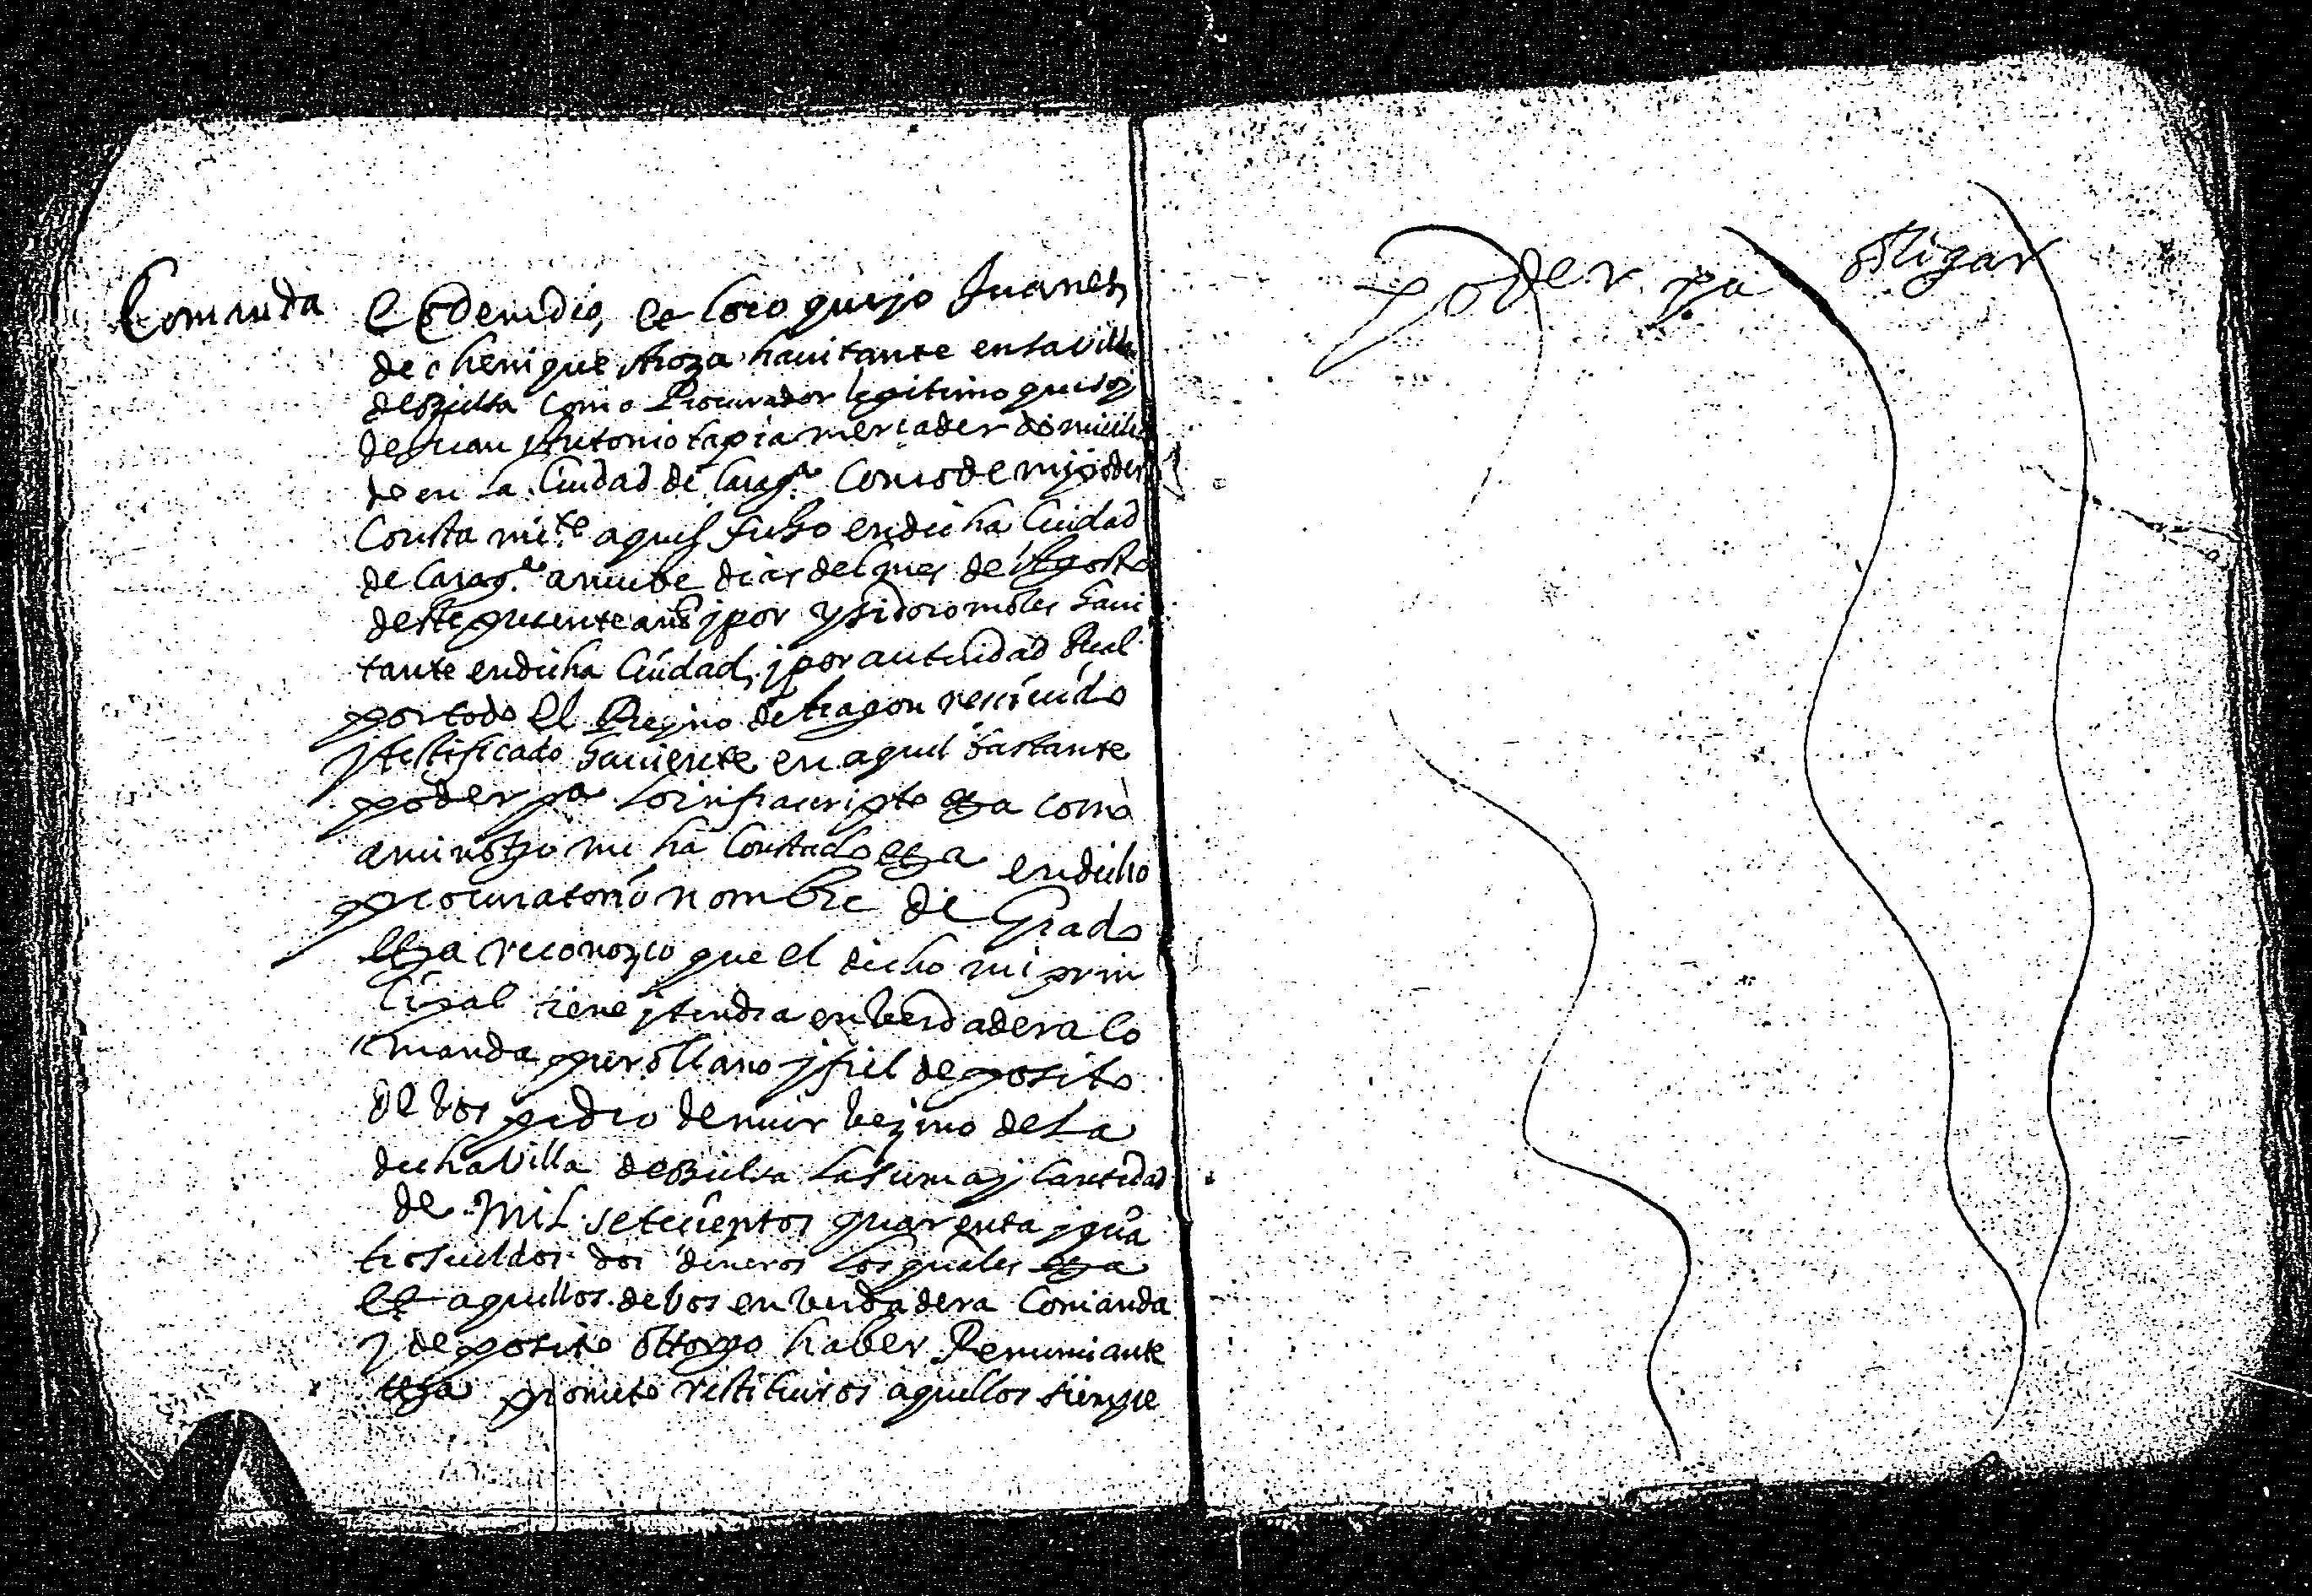 Comanda
Eodem die, et loco que yo Juanes
de chenique Aroza hauitante en la villa
de Bielsa como Procurador legitimo que soy
de Juan Antonio tapia mercader domicilia
do en la Ciudad de Carag.ª como de mi poder
Consta mi.te aquel fecho en dicha Ciudad
de Carag.ª a nueve dias del mes de Agosto
deste presente año j por ysidoro moles haui
tante en dicha Ciudad, j por autoridad Real
por todo el Reyno de Aragon reciuido
j testificado hauiente en aquel bastante
poder pa lo infrascripto etza como
a mi noto mi ha Constado etza en dicho
procuratorio nombre de Grado
etza reconozco que el dicho mi prin
cipal tiene j tendra en berdadera co
manda puro llano j fiel deposito
de bos pedro demur bezino de La
dicha villa de Bielsa La suma j Cantidad
de Mil setecientos quarenta j qua
tro sueldos dos dineros Los quales etza
Et aquellos de bos en berdadera Comanda
j deposito ottorgo haber Renunciante
etza prometo restituiros aquellos siempre
poder pa obligar